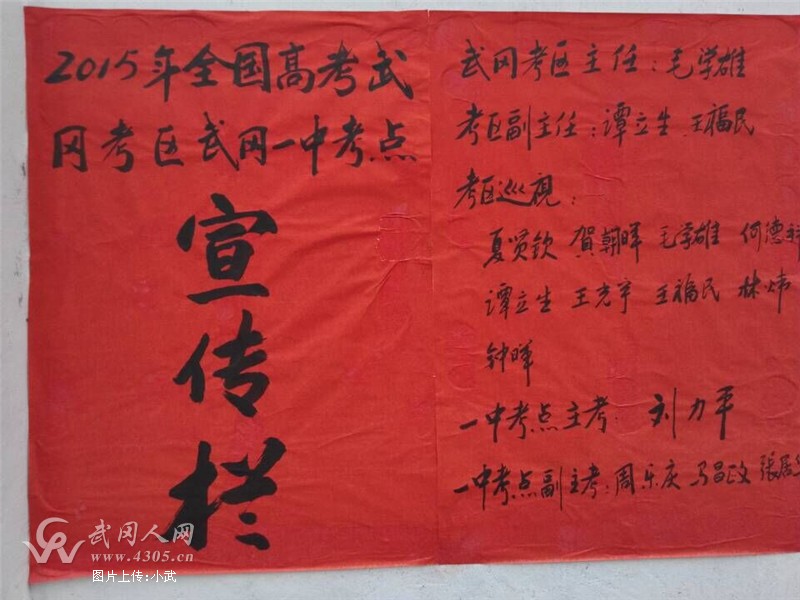 2015年全国高考武
冈考区武冈一中考点
宣
传
栏
武冈考区主任：毛学雄
考区副主任：谭立生 王福民
考区巡视：
夏贤钦 贺朝晖 毛学雄 何德祥
谭立生 王光宇 王福民 林炜
钟晖
一中考点主考：刘力平
一中考点副主考：周乐庆 马昌政 張居
武冈人网
www.4305.cn
图片上传:小武